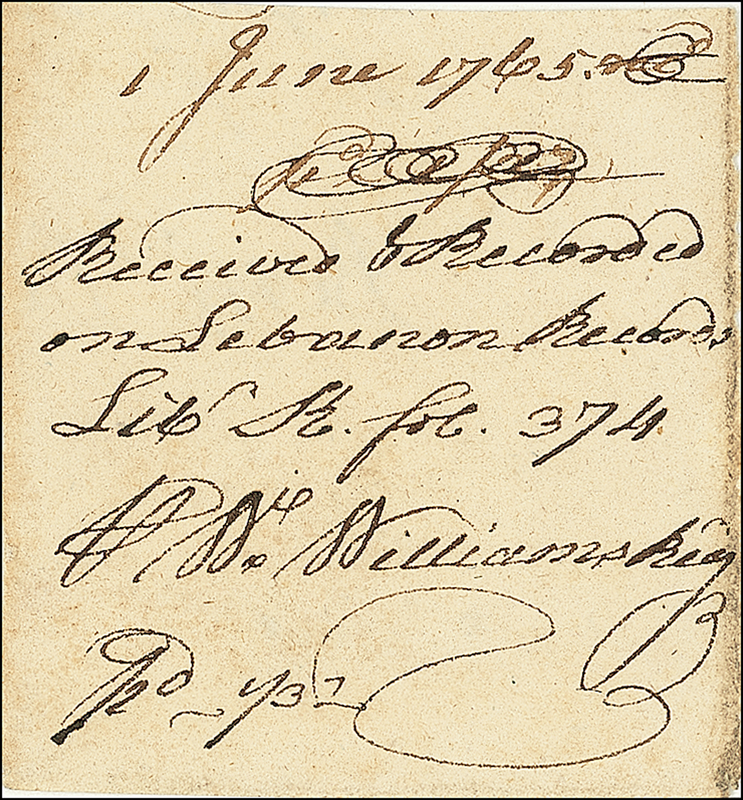 1 June 1765.
Received & Recorded
on Lebanon Records
Lib.r K. fol. 374
P Wm Williams Reg
pd